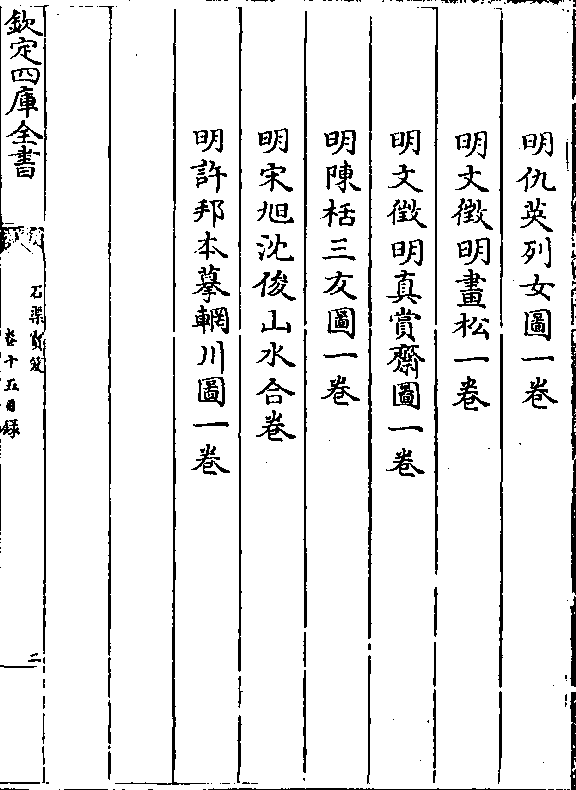 明仇英列女圖一卷
明文徵明畫松一卷
明文徵明真賞齋圖一卷
明陳栝三友圖一卷
明宋旭沈俊山水合卷
明許邦本摹輞川圖一卷
欽定四庫全書
石渠寳笈
卷十五目錄
二